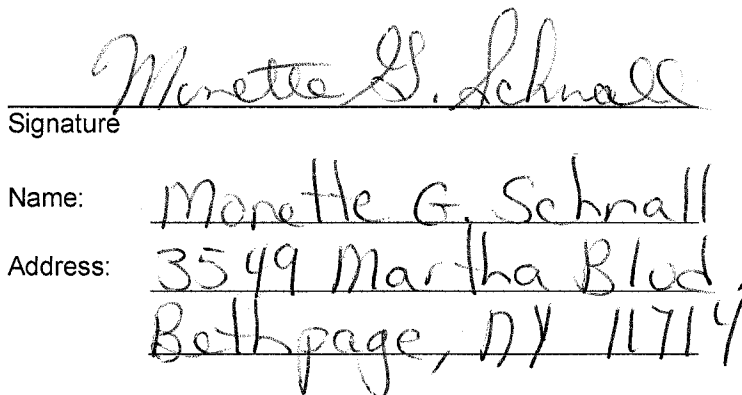 Monette G. Schnall
Signature
Name: Monette G. Schnall
Address: 3549 Martha Blvd,
Bethpage, NY 11714